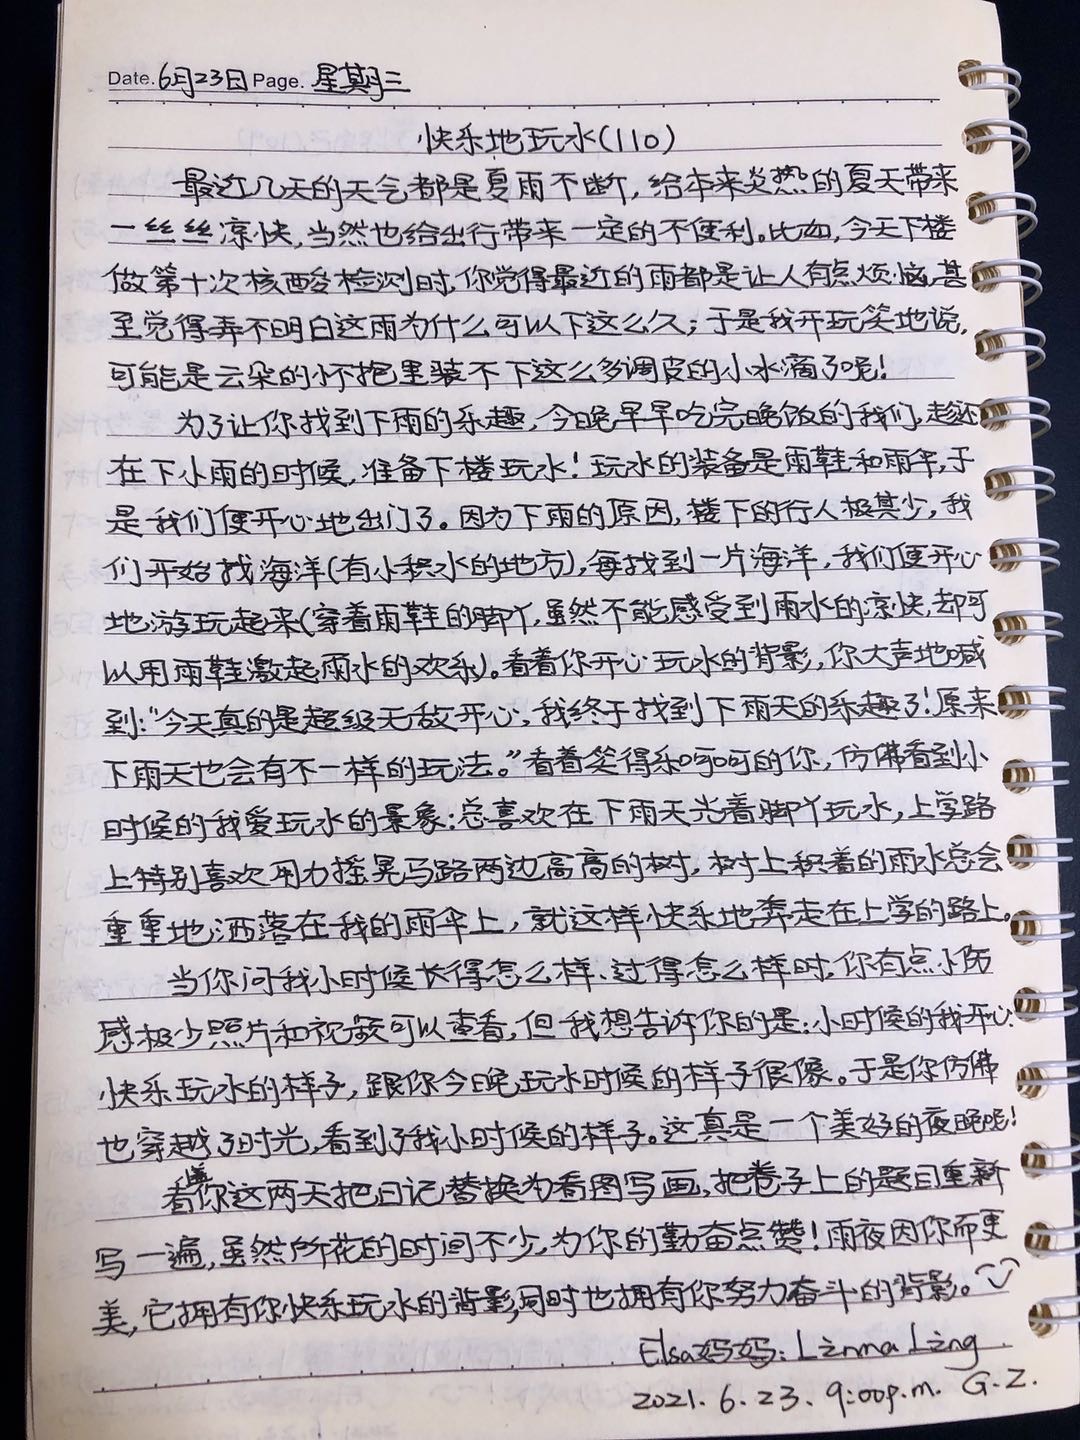 Date. 6月23日 Page. 星期三
快乐地玩水(110)
最近几天的天气都是夏雨不断，给本来炎热的夏天带来
一丝丝凉快，当然也给出行带来一定的不便利。比如，今天下楼
做第十次核酸检测时，你觉得最近的雨都是让人有点烦恼，甚
至觉得弄不明白这雨为什么可以下这么久；于是我开玩笑地说，
可能是云朵的怀抱里装不下这么多调皮的小水滴了呢！
为了让你找到下雨的乐趣，今晚早早吃完晚饭的我们，趁还
在下小雨的时候，准备下楼玩水！玩水的装备是雨鞋和雨伞，于
是我们便开心地出门了。因为下雨的原因，楼下的行人极其少，我
们开始找海洋(有小积水的地方)，每找到一片海洋，我们便开心
地游玩起来(穿着雨鞋的脚丫，虽然不能感受到雨水的凉快，却可
以用雨鞋激起雨水的欢乐)。看着你开心玩水的背影，你大声地喊
到：“今天真的是超级无敌开心，我终于找到下雨天的乐趣了！原来
下雨天也会有不一样的玩法。”看着笑得乐呵呵的你，仿佛看到小
时候的我爱玩水的景象：总喜欢在下雨天光着脚丫玩水，上学路
上特别喜欢用力摇晃马路两边高高的树，树上积着的雨水总会
重重地洒落在我的雨伞上，就这样快乐地奔走在上学的路上。
当你问我小时候长得怎么样、过得怎么样时，你有点小伤
感极少照片和视频可以查看，但我想告诉你的是：小时候的我开心
快乐玩水的样子，跟你今晚玩水时候的样子很像。于是你仿佛
也穿越了时光，看到了我小时候的样子。这真是一个美好的夜晚呢！
看着你这两天把日记替换为看图写画，把卷子上的题目重新
写一遍，虽然所花的时间不少，为你的勤奋点赞！雨夜因你而更
美，它拥有你快乐玩水的背影，同时也拥有你努力奋斗的背影。
Elsa妈妈：Linma Ling
2021.6.23. 9:00p.m. G.Z.